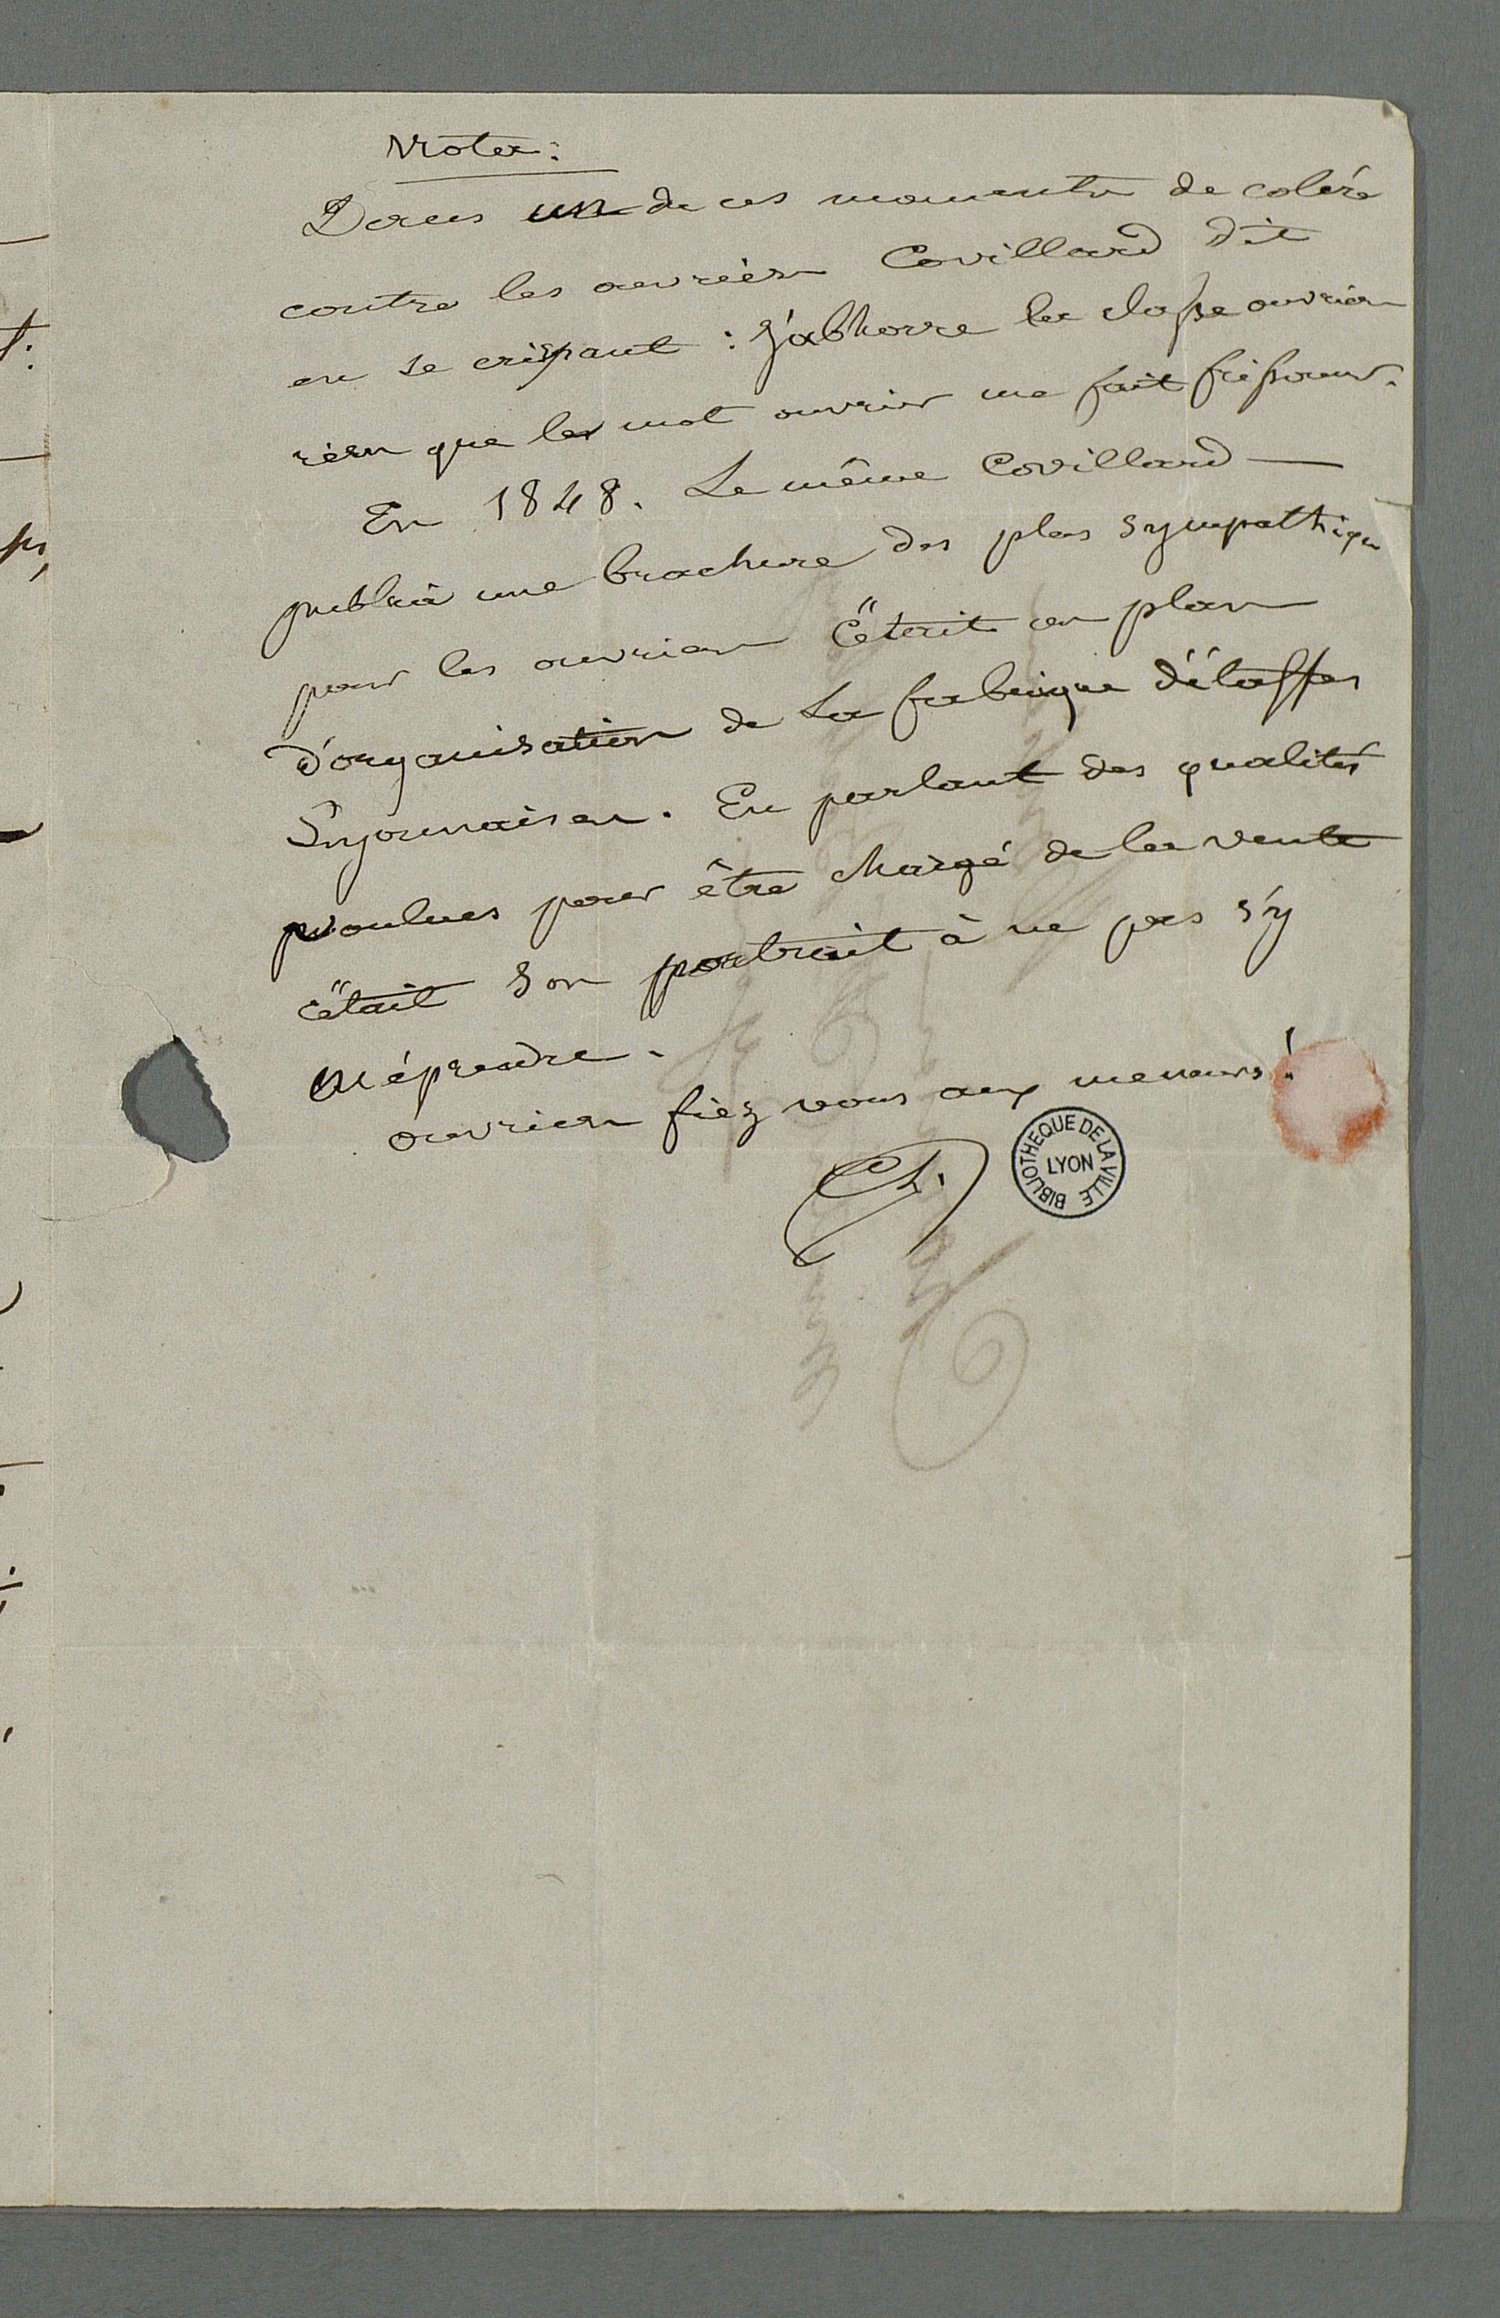 Nota:
Dans un de ces moments de colère
contre les ouvriers Covillard dit
en se crispant : J'abhorre la classe ouvrière
rien que le mot ouvrier me fait frissonner.
En 1848. Le même Covillard —
publia une brochure des plus sympathiques
pour les ouvriers C'était un plan
d'organisation de la fabrique d'étoffes
Lyonnaises. En parlant des qualités
voulues pour être chargé de la vente
c'était son portrait à ne pas s'y
méprendre.
ouvriers fiez vous aux meneurs !
Ch.
BIBLIOTHEQUE DE LA VILLE
LYON